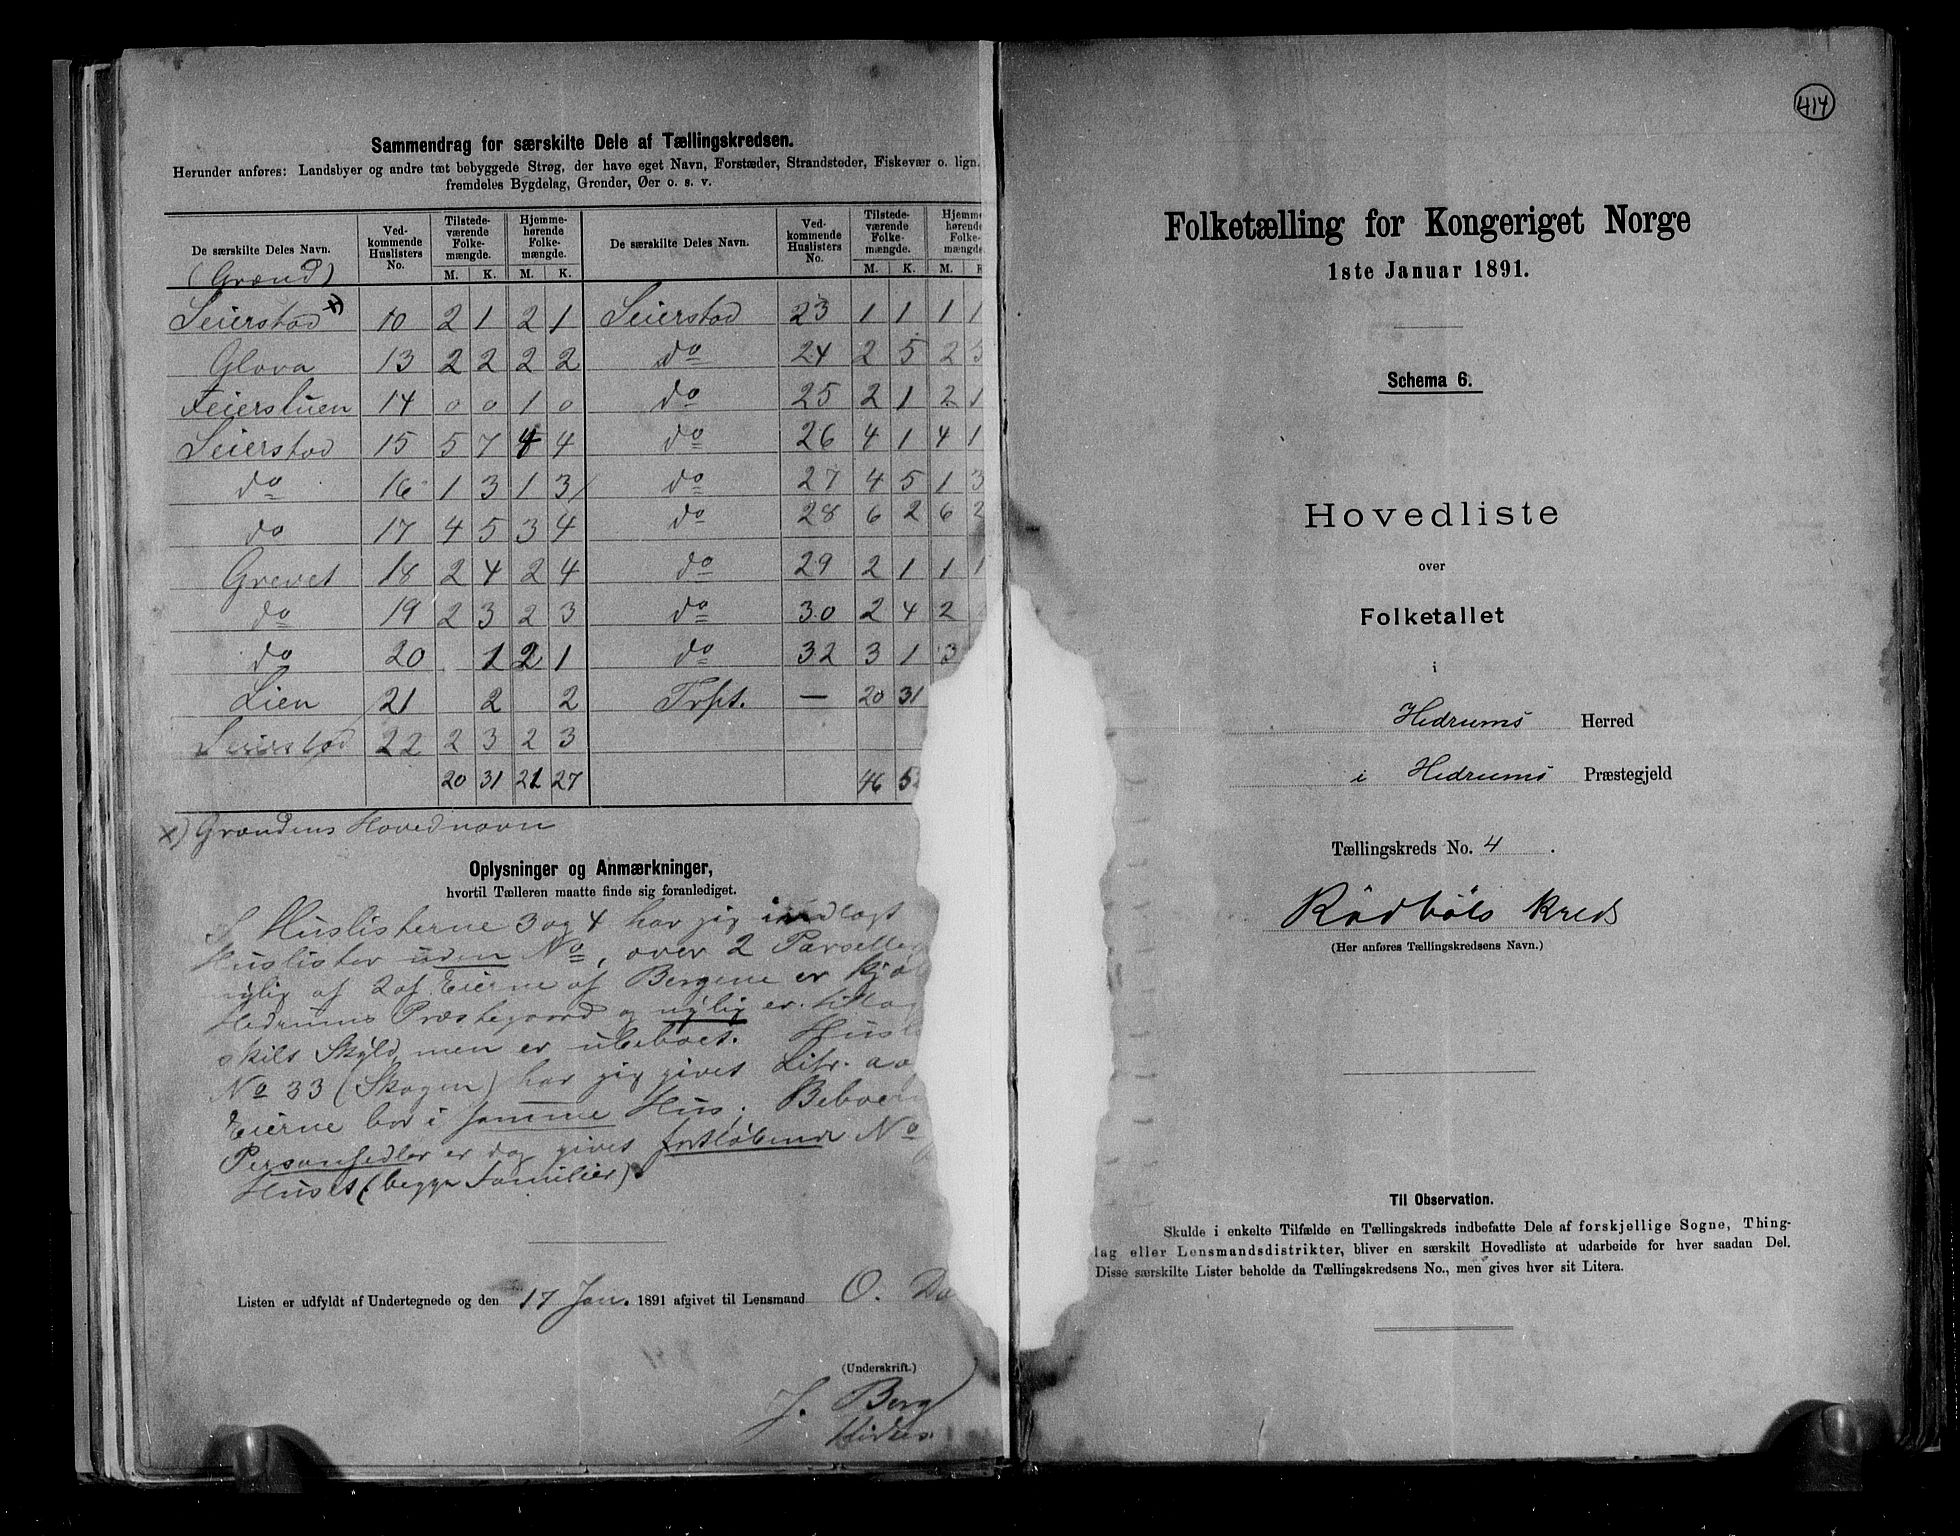 Sammendrag for særskilte Dele af Tællingskredsen.
Herunder anføres: Landsbyer og andre tæt bebyggede Strøg, der have eget Navn, Forstæder, Strandsteder, Fiskevær o. lign.
fremdeles Bygdelag, Grender, Øer o. s. v.
De særskilte Deles Navn. Ved-kommende Huslisters No. Tilstede-værende Folke-mængde. M. K. Hjemme-hørende Folke-mængde. M. K. De særskilte Deles Navn. Ved-kommende Huslisters No. Tilstede-værende Folke-mængde. M. K. Hjemme-hørende Folke-mængde. M. K.
(Grænd)
Seierstad x) 10 2 1 2 1 Seierstad 23 1 1 1 1
Glova 13 2 2 2 2 do 24 2 5 2 5
Feierstuen 14 0 0 1 0 do 25 2 1 2 1
Seierstad 15 5 7 4 4 do 26 4 1 4 1
do 16 1 3 1 3 do 27 4 5 1 3
do 17 4 5 3 4 do 28 6 2 6 2
Grevet 18 2 4 2 4 do 29 2 1 1 1
do 19 2 3 2 3 do 30 2 4 2
do 20 1 2 1 do 32 3 1 3
Lien 21 2 2 Trpt. — 20 31
Seierstad 22 2 3 2 3
20 31 21 27 46
x) Grændens Hovednavn
Oplysninger og Anmærkninger,
hvortil Tælleren maatte finde sig foranlediget.
I Huslisterne 3 og 4 har jeg indlagt
Huslister uden No, over 2 Parseller
nylig af 2 af Eierne af Bergene er
Hedrums Præstegaard og nylig er
skils Skyld, men er ubeboet.
No 33 (Skogen) har jeg givet Litr. a og
Eierne bor i samme Hus;
Personsedler er dog givet fortløbende No
Huset (begge Familier).
Listen er udfyldt af Undertegnede og den 17 Jan. 1891 afgivet til Lensmand O.
(Underskrift.)
J. Berg
414
Folketælling for Kongeriget Norge
1ste Januar 1891.
Schema 6.
Hovedliste
over
Folketallet
i
Hedrums Herred
i Hedrums Præstegjeld
Tællingskreds No. 4.
Rødbøls Kreds
(Her anføres Tællingskredsens Navn.)
Til Observation.
Skulde i enkelte Tilfælde en Tællingskreds indbefatte Dele af forskjellige Sogne, Thing-
lag eller Lensmandsdistrikter, bliver en særskilt Hovedliste at udarbeide for hver saadan Del.
Disse særskilte Lister beholde da Tællingskredsens No., men gives hver sit Litera.